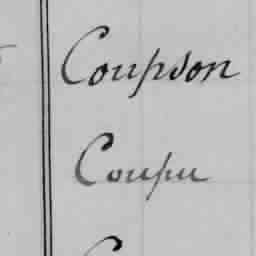 Coupson
Coupu